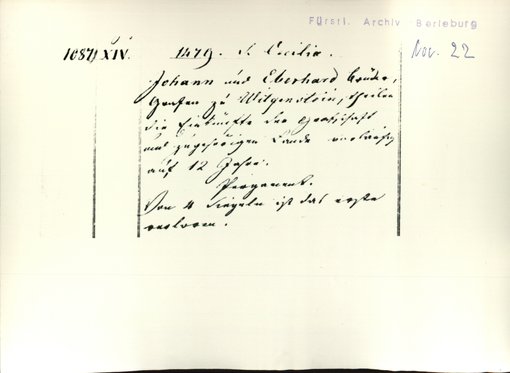 Fürstl. Archiv Berleburg
Nov. 22
1479. S. Cecilia.
Johann und Eberhard Brüder,
Grafen zu Witgenstein, theilen
die Einkünfte der Grafschaft
und zugehörigen Lande vorläufig
auf 12 Jahre.
Pergament.
Von 4 Siegeln ist das erste
verloren.